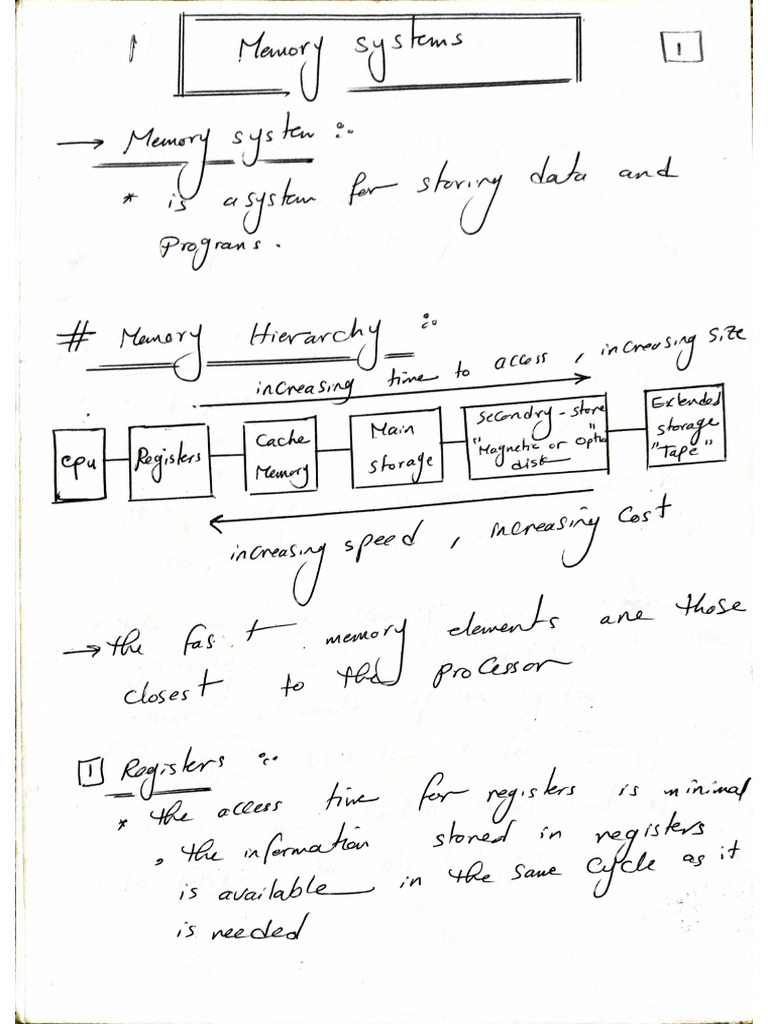 Memory systems
1
→ Memory system :.
* is a system for storing data and
Programs.
# Memory Hierarchy :.
increasing time to access, increasing size
cpu
Registers
Cache
Memory
Main
storage
Secondry-store
"Magnetic or Optic"
disk
Extended
storage
"Tape"
increasing speed, increasing cost
→ the fast memory elements are those
closest to the processor
1 Registers :.
* the access time for registers is minimal
, the information stored in registers
is available in the same cycle as it
is needed